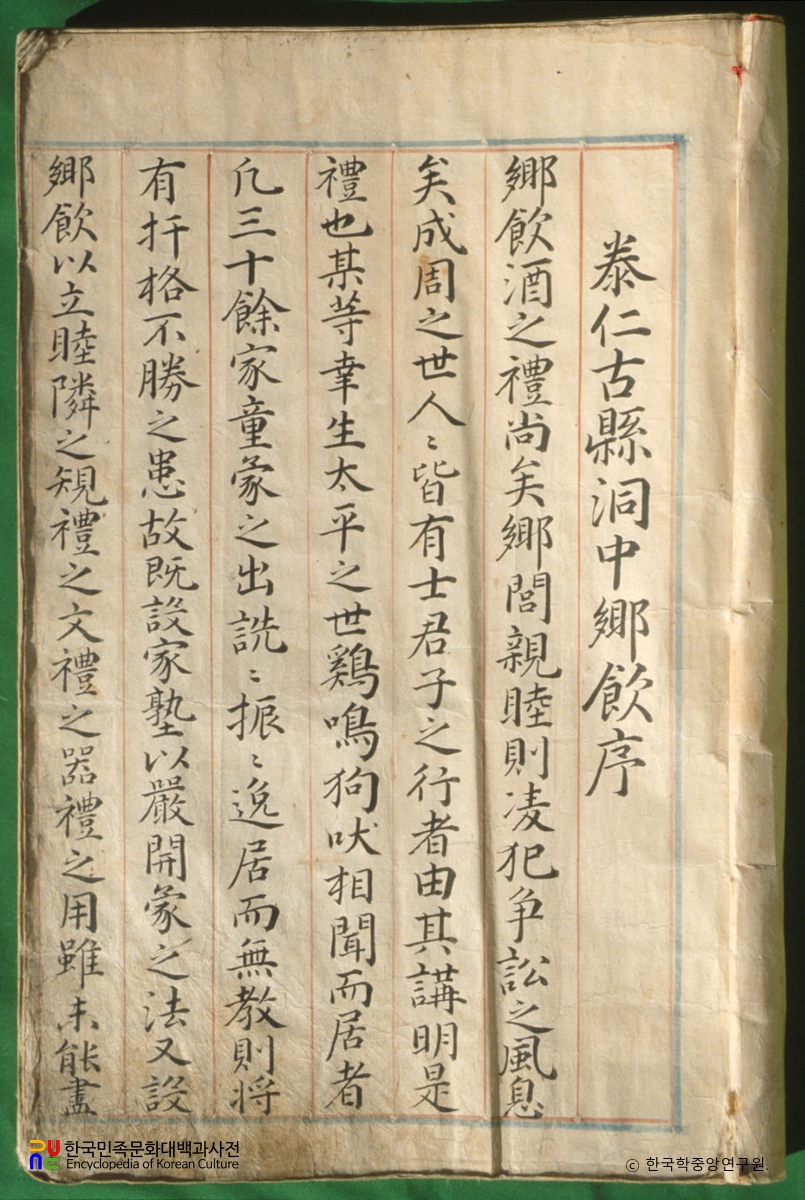 泰仁古縣洞中鄉飮序
鄉飮酒之禮尚矣鄉閭親睦則凌犯争訟之風息
矣成周之世人〻皆有士君子之行者由其講明是
禮也某等幸生太平之世鷄鳴狗吠相聞而居者
凡三十餘家童蒙之出詵〻振〻逸居而無教則将
有扞格不勝之患故既設家塾以嚴開蒙之法又設
鄉飮以立睦隣之規禮之文禮之器禮之用雖未能盡
한국민족문화대백과사전
Encyclopedia of Korean Culture
ⓒ 한국학중앙연구원.